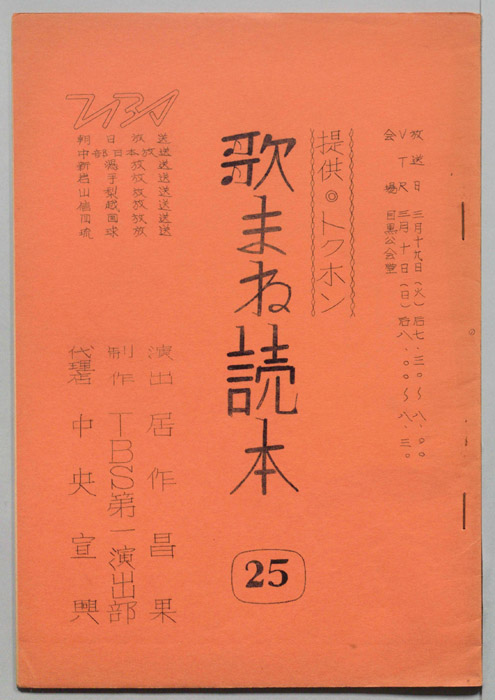 放送日 三月十九日(火)后七.三〇〜八.〇〇
VTR 三月十日(日)后八.〇〇〜八.三〇
会場 目黒公会堂
提供◎トクホン
歌まね読本
25
TBS
朝日放送
中部日本放送
新潟放送
岩手放送
山梨放送
信越放送
四国放送
琉球放送
演出 居作昌果
制作 TBS第一演出部
代理店 中央宣興